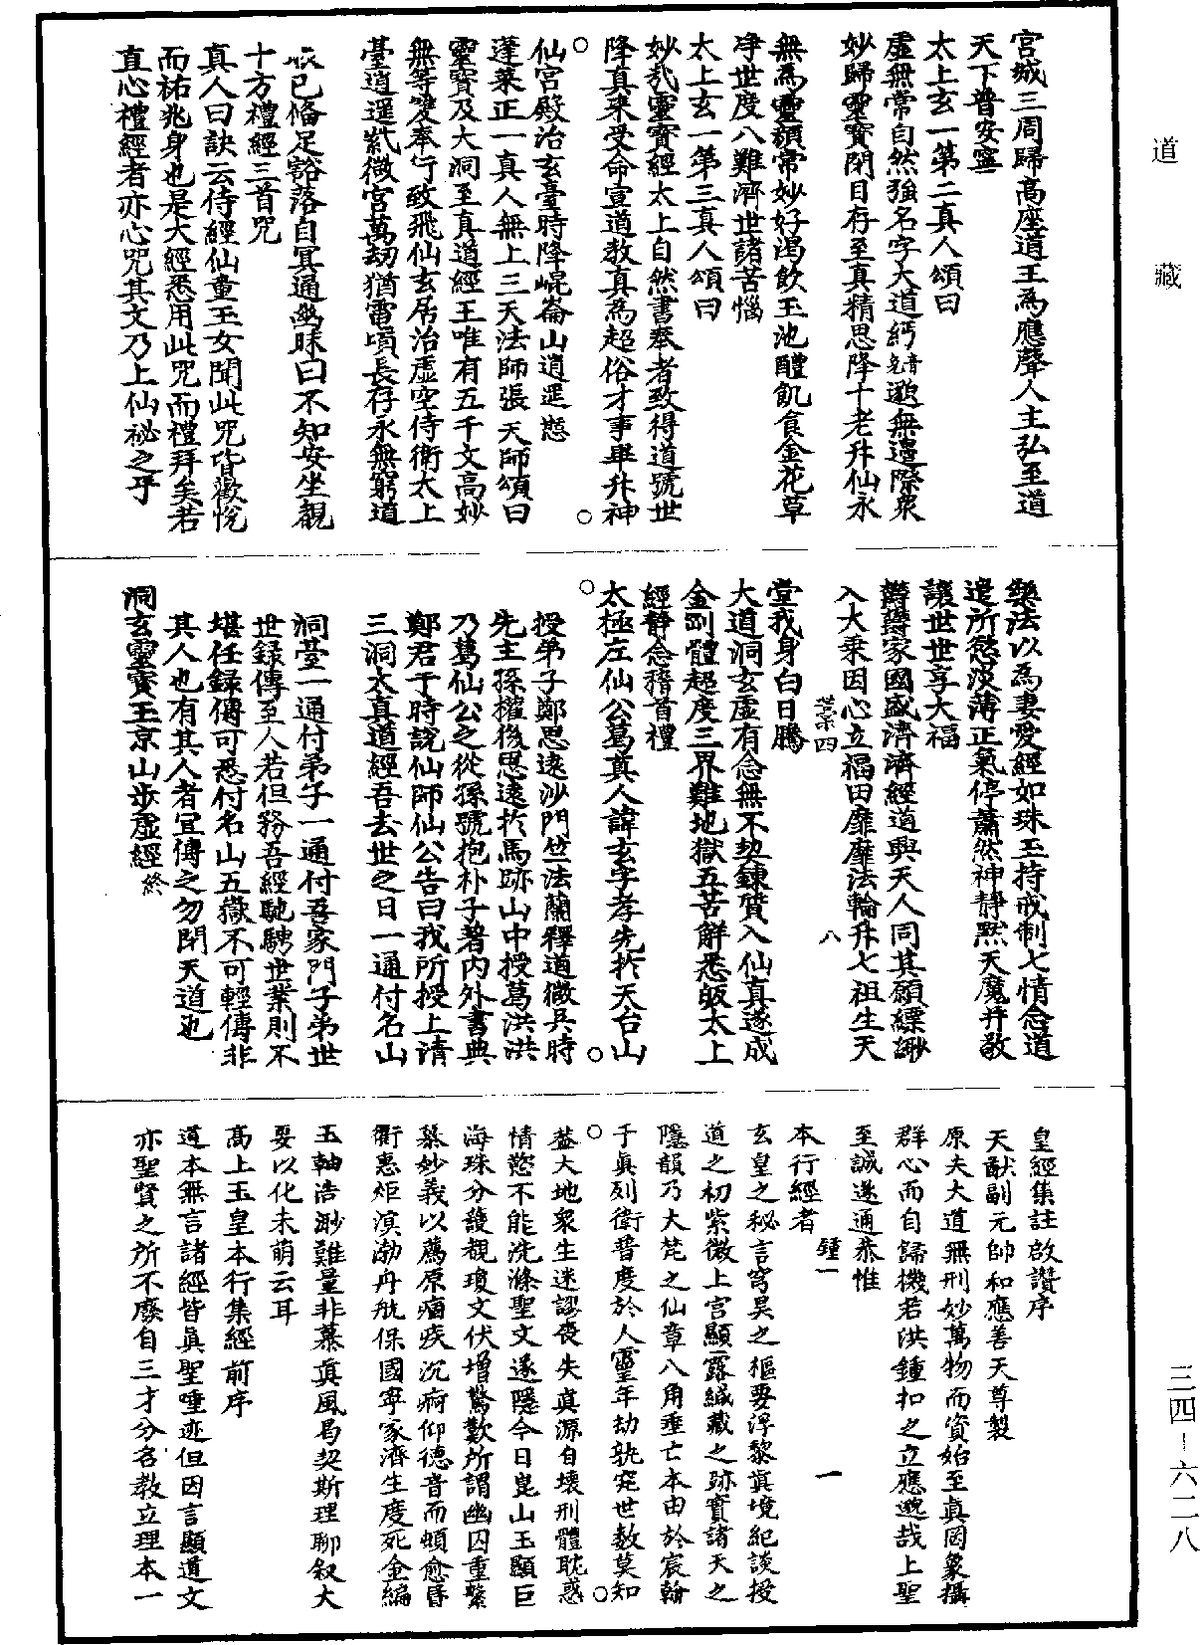 道藏
宮城三周歸高座道王為應聲人主弘至道
天下普安寧
太上玄一第二真人頌曰
虛無常自然強名字大道緬邈無邊際衆
妙歸靈寶閉目存至真精思降十老升仙永
無為靈顏常妙好渴飲玉池醴飢食金花草
淨世度八難濟世諸苦惱
太上玄一第三真人頌曰
妙哉靈寶經太上自然書奉者致得道號世
降真來受命宣道教真為超俗才事畢升神
仙宮殿治玄臺時降崐崙山逍遥憩
蓬萊正一真人無上三天法師張天師頌曰
靈寶及大洞至真道經王唯有五千文高妙
無等雙奉行致飛仙玄居治虛空侍衛太上
臺逍遥紫微宮萬劫猶電頃長存永無窮道
已脩足豁落自冥通幽昧曰不知安坐觀
十方禮經三首咒
真人曰訣云侍經仙童玉女聞此咒皆歡悅
而祐兆身也是大經悉用此咒而禮拜矣若
直心禮經者亦心咒其文乃上仙祕之乎
樂法以為妻愛經如珠玉持戒制七情念道
遣所慾淡薄正氣停蕭然神靜默天魔并敬
護世世享大福
鬱鬱家國盛濟濟經道興天人同其願縹緲
入大乘因心立福田靡靡法輪升七祖生天
堂我身白日騰
大道洞玄虛有念無不契鍊質入仙真遂成
金剛體超度三界難地獄五苦解悉皈太上
經靜念稽首禮
太極左仙公葛真人諱玄字孝先於天台山
授弟子鄭思遠沙門竺法蘭釋道微吳時
先主孫權後思遠於馬跡山中授葛洪洪
乃葛仙公之從孫號抱朴子著内外書典
鄭君于時說仙師仙公告曰我所授上清
三洞太真道經吾去世之日一通付名山
洞臺一通付弟子一通付吾家門子弟世
世録傳至人若但務吾經馳騁世業則不
堪任録傳可悉付名山五嶽不可輕傳非
其人也有其人者宜傳之勿閉天道也
洞玄靈寶玉京山步虛經終
皇經集註啟讚序
天猷副元帥和應善天尊製
原夫大道無刑妙萬物而資始至真罔象攝
群心而自歸機若洪鍾扣之立應邈哉上聖
至誠遂通恭惟
本行經者 鍾一 一
玄皇之秘言穹昊之樞要浮黎真境紀談授
道之初紫微上宮顯露緘藏之跡實諸天之
隱韻乃大梵之仙章八角垂亡本由於宸翰
千真列衛普度於人靈年劫孰窕世數莫知
蓋大地衆生迷謬喪失真源自壞刑體耽惑
情慾不能洗滌聖文遂隱今日崑山玉顯巨
海珠分護覩瓊文伏增驚歎所謂幽囚重繫
慕妙義以薦原痼疾沉痾仰德音而頓愈昏
衢惠炬溟渤舟航保國寧家濟生度死金編
玉軸浩渺難量非慕真風曷契斯理聊叙大
要以化未萌云耳
高上玉皇本行集經前序
道本無言諸經皆真聖唾迹但因言顯道文
亦聖賢之所不廢自三才分名教立理本一
三四－六二八